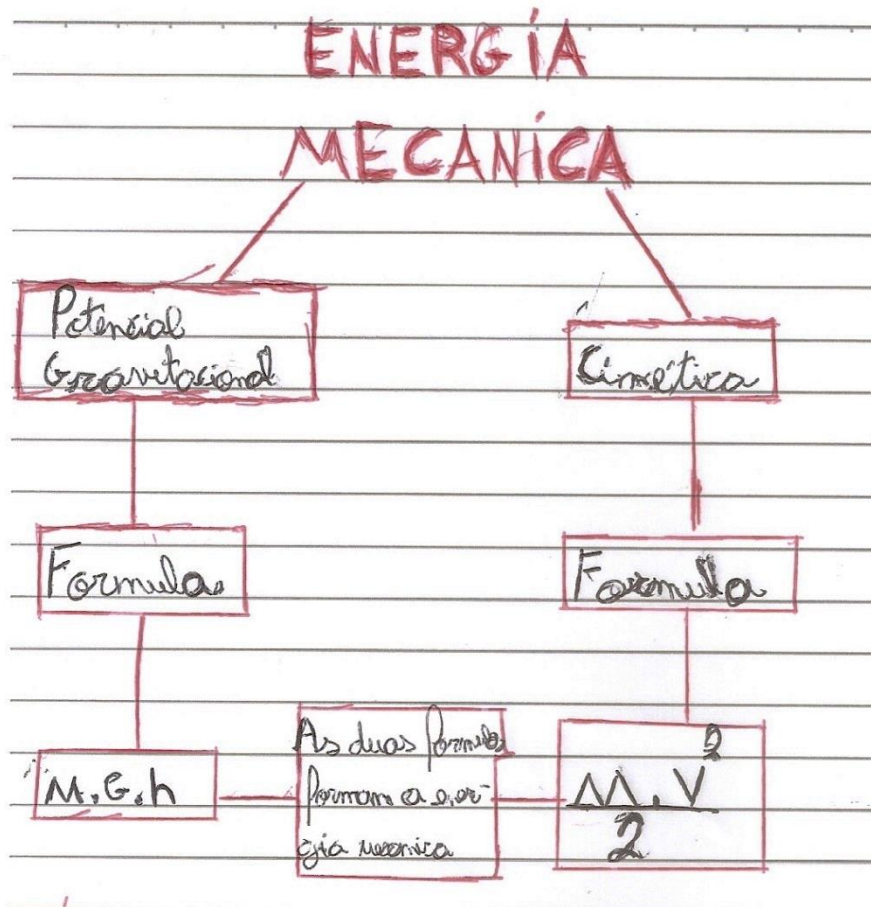 ENERGÍA
MECANÍCA
Potencial
Gravitacional
Cinética
Formula
Formula
M.G.h
As duas formulas
formam a
gia
M.V²
2